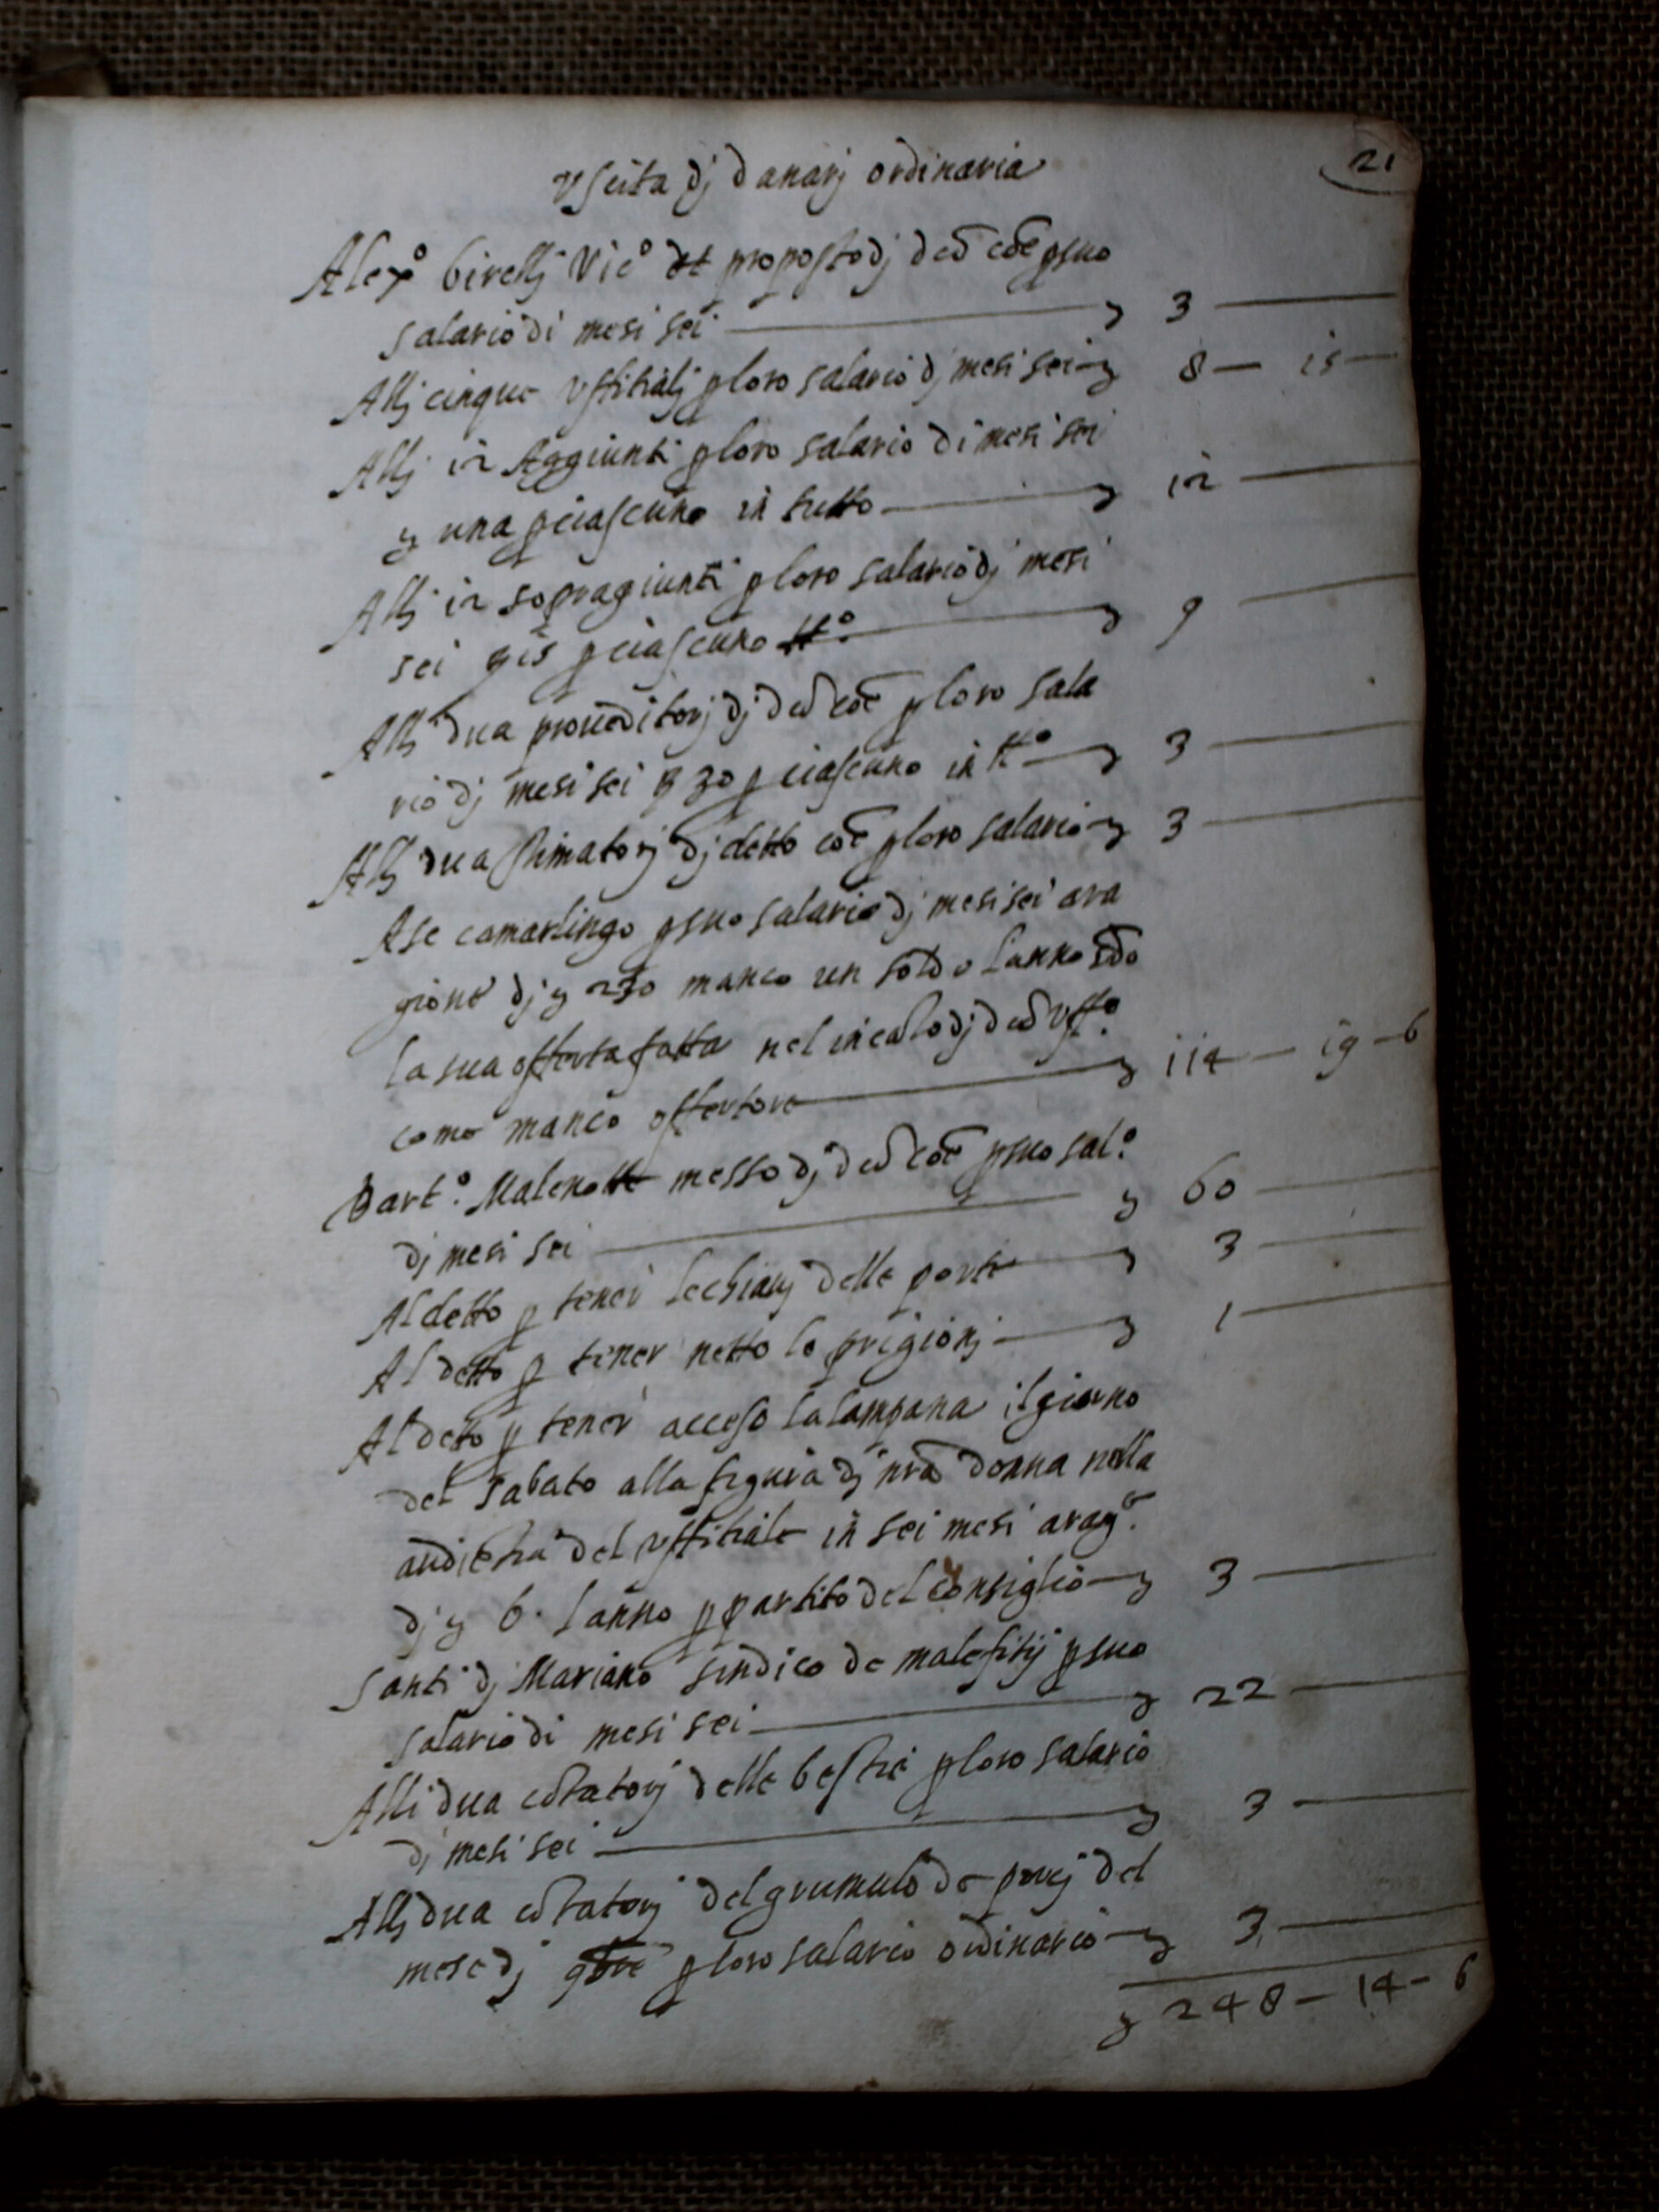 21
Uscita dj danarj ordinaria
Aless.o birellj Vic.o et proposto dj d.o cōe p suo
salario di mesi sei £ 3
Allj cinque Uffitialj p loro salario dj mesi sei £ 8 — 15
Allj 12 Aggiunti p loro salario di mesi sei
£ una p ciascuno in tutto £ 12
Allj 12 sopragiunti p loro salario dj mesi
sei 15 p ciascuno tt.o £ 9
Allj dua proueditorj dj d.o cōe p loro sala
rio dj mesi sei 30 p ciascuno in tt.o £ 3
Allj dua stimatorj dj detto cōe p loro salario £ 3
A se camarlingo p suo salario dj mesi sei a ra
gione dj £ 230 manco un soldo lanno sd̄o
la sua offerta fatta nel incāto dj d.o uff.o
come manco offertore £ 114 — 19 — 6
Bart.o Malenotte messo dj d.o cōe p suo sal.o
dj mesi sei £ 60
Al detto p tener le chiavj delle porte £ 3
Al detto p tener netto le prigionj £ 1
Al detto p tener acceso la lampana il giorno
del sabato alla figura dj nrā donna nella
audiētia del uffitiale in sei mesi a rag.e
dj £ 6. lanno p partito del consiglio £ 3
Santi dj Mariano sindico de malefitij p suo
salario di mesi sei £ 22
Alli dua cōtatorj delle bestie p loro salario
dj mesi sei £ 3
Allj dua cōtatorj del grumulo de porcj del
mese dj p loro salario ordinario £ 3
£ 248 — 14 — 6